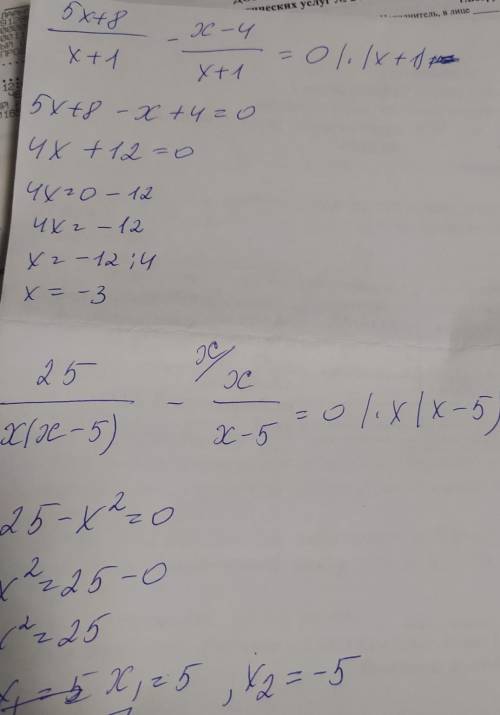 5x+8 / x+1 - x-4 / x+1 = 0 | · (x+1)
5x+8 - x+4=0
4x+12=0
4x=0-12
4x=-12
x=-12:4
x=-3
25 / x(x-5) - x/ x / x-5 = 0 | · x(x-5)
25-x²=0
x²=25-0
x²=25
x₁=5 x₁=5, x₂=-5